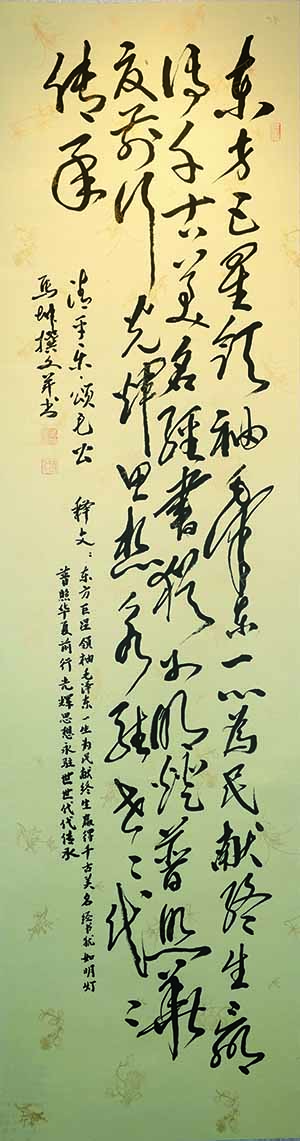 东方巨星领袖毛泽东一心为民献终生赢
得千古美名经书犹如明灯普照華
夏前行光辉思想永驻世〻代〻
传承
清平乐·颂毛公
撰文并书
释文：东方巨星领袖毛泽东一生为民献终生取得千古美名经书犹如明灯
普照华夏前行光辉思想永驻世世代代传承